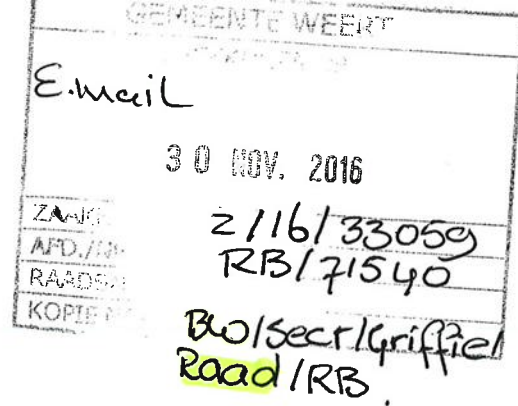 GEMEENTE WEERT
E.mail
30 NOV. 2016
Z/16/33059
AFD./
RB/71540
KOPIE
B&W/Secr/Griffie/
Raad/RB.